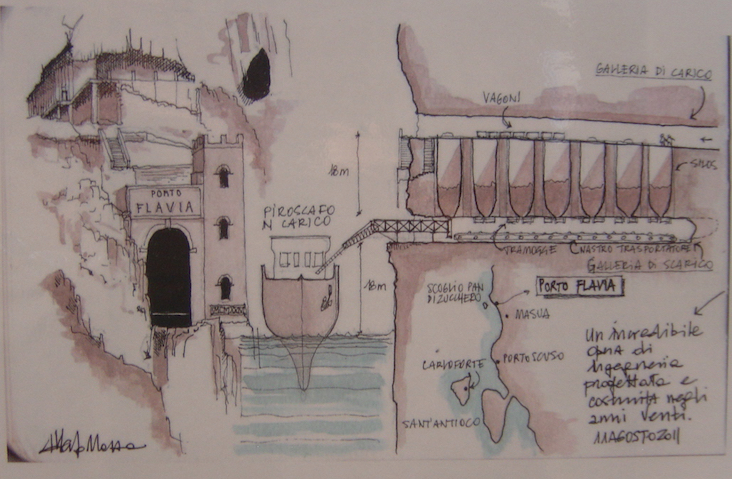 PORTO
FLAVIA
PIROSCAFO
N CARICO
18m
18m
VAGONI
GALLERIA DI CARICO
SILOS
TRAMOGGE
NASTRO TRASPORTATORE
GALLERIA DI SCARICO
SCOGLIO PAN
DI ZUCCHERO
PORTO FLAVIA
MASUA
CARLOFORTE
PORTOSCUSO
SANT'ANTIOCO
Un incredibile
opera di
Ingegneria
progettata e
costruita negli
anni venti.
11AGOSTO2011